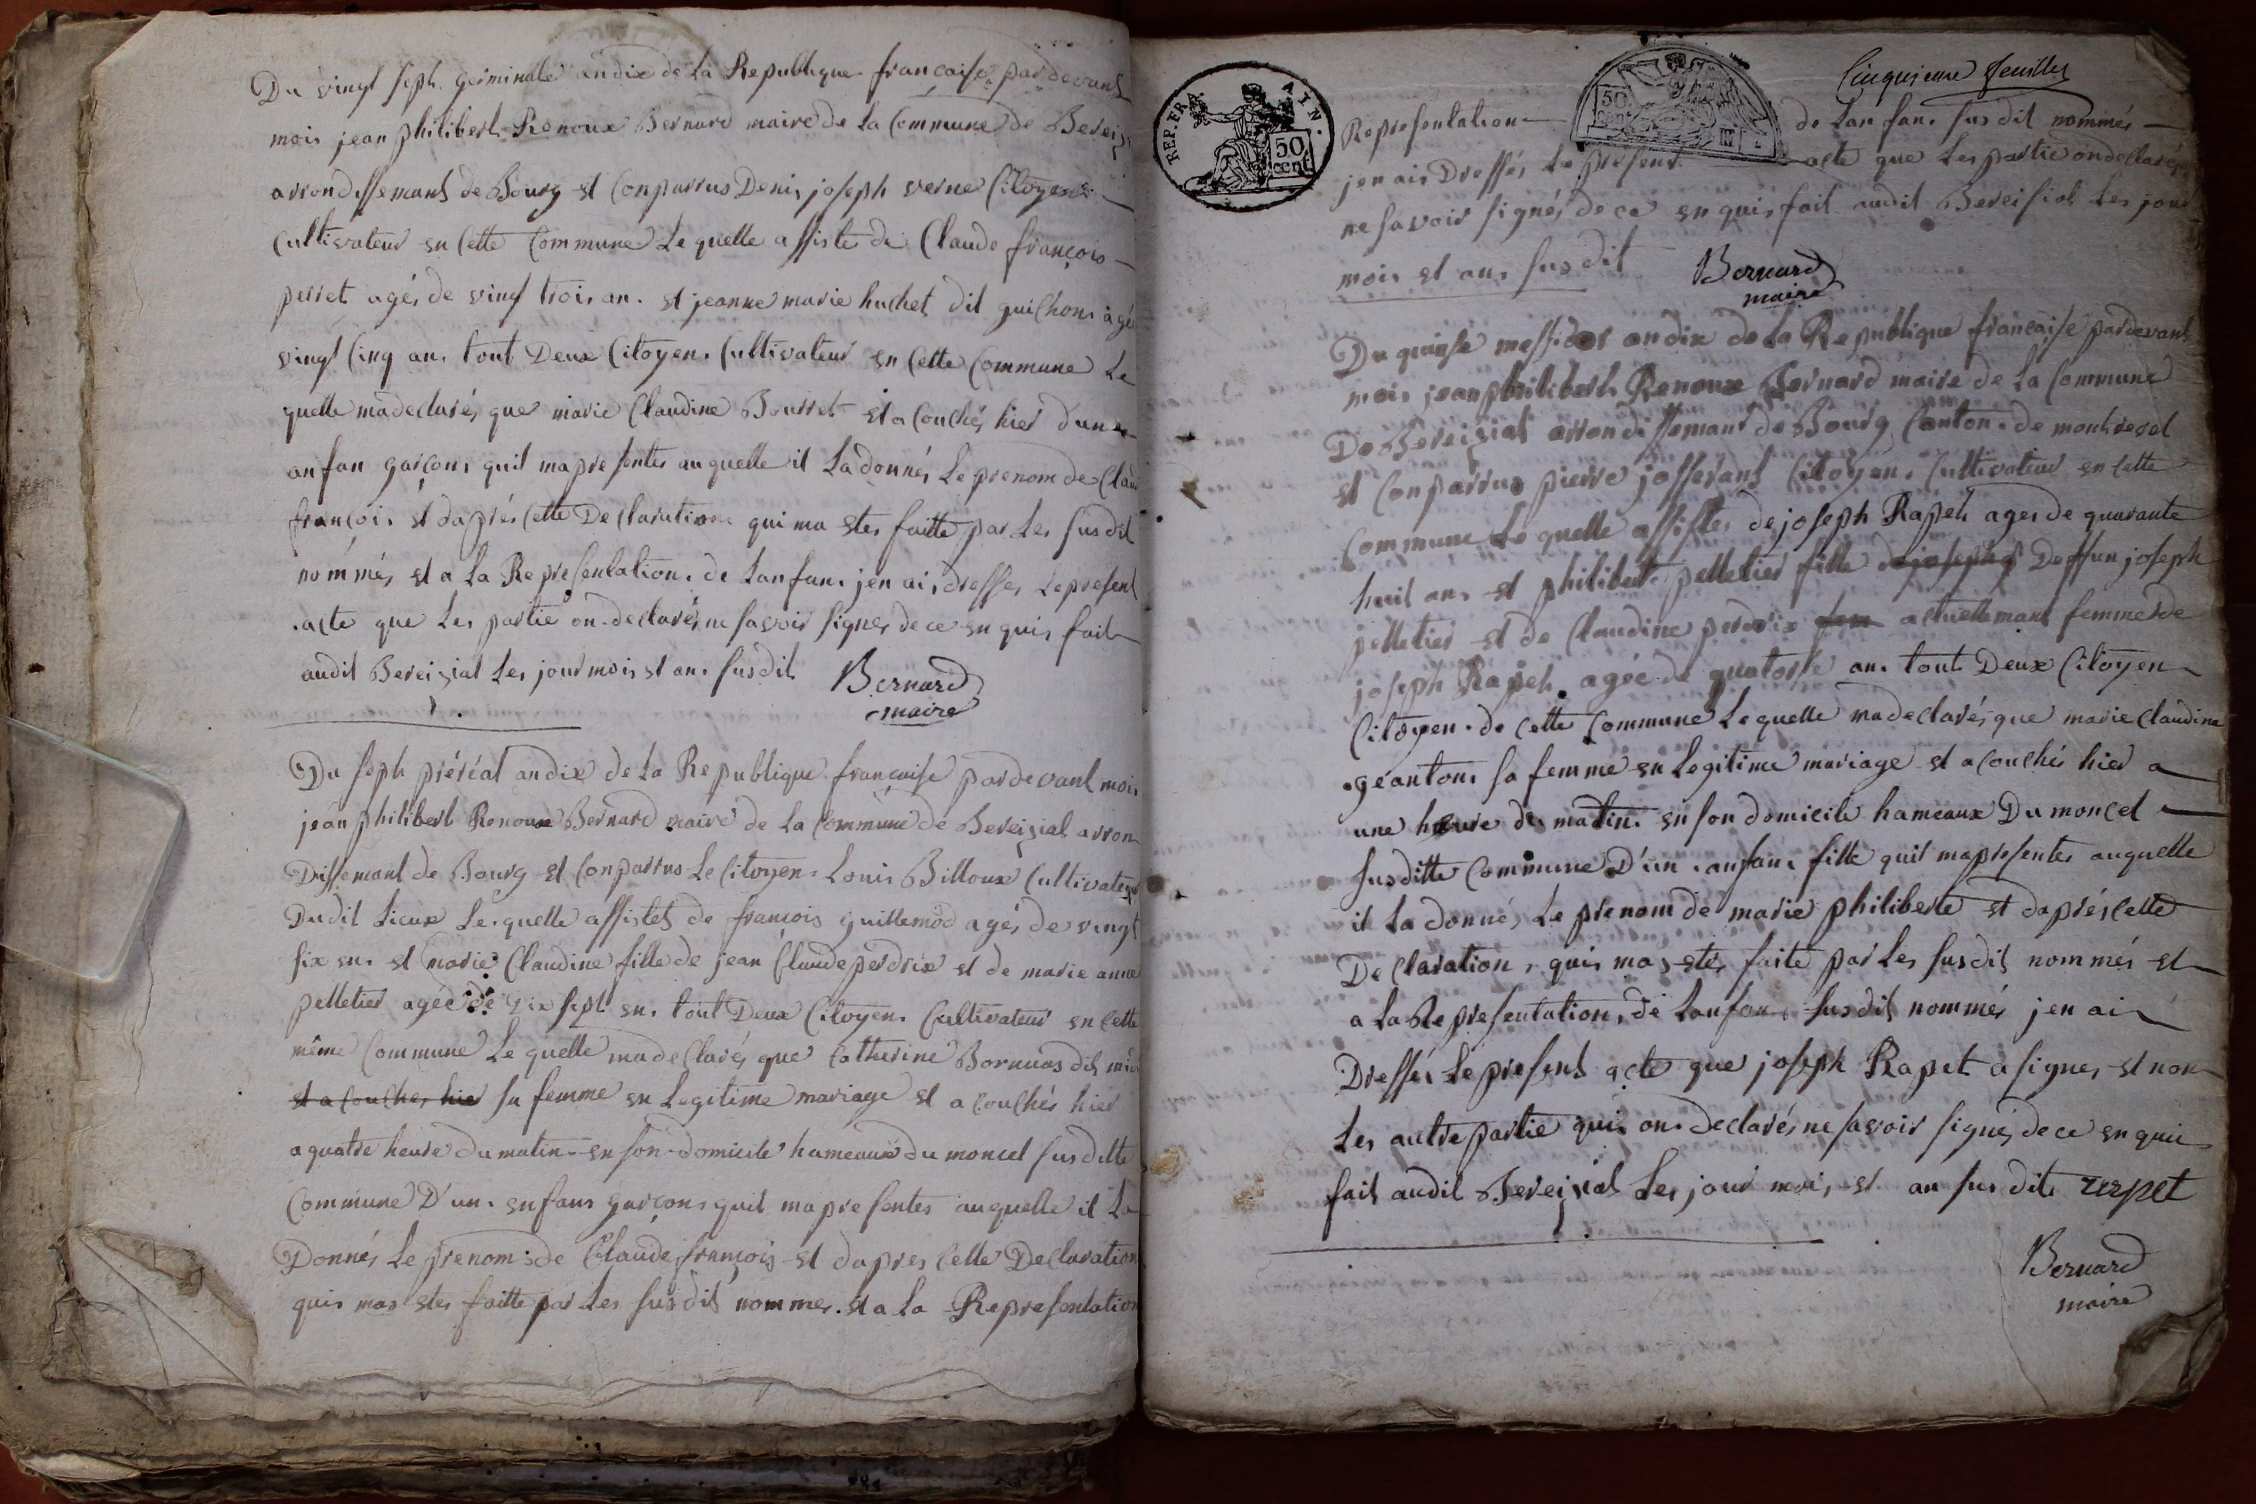 Du vingt seph germinale an dix de la Republique francaise par devant
moi jean philibert Renoux Bernard maire de la Commune de Bereizi
arrondissemant de Bourg et Conparrus Denis joseph verne Citoyens
Cultivateur en Cette Commune Le quelle assiste de Claude françois
perret agés de vingt trois an. et jeanne marie huchet dit guichon agé
vingt Cinq an. tout Deux Citoyen. Cultivateur en Cette Commune Le
quelle ma declarés que marie Claudine Bourret et a Couchés hier d'un
anfan garçon quil ma presentes au quelle il La donnés Le prenom de Clau
françois et daprés Cette Declaration qui ma etes faitte par Les susdit
nommés et a La Representation. de Lanfan. jen ai dresses Le present
acte que Les partie on declarés ne savoir signer de ce en quis fait
audit Bereizial Les jour mois et an. susdit
Bernard
maire
Du seph préréal an dix de La Republique francaise par devant moi
jean philibert Renoux Bernard maire de La Commune de Bereizial arron
Dissemant de Bourg et Conparrus Le Citoyen Louis Billoux Cultivateur
Dudit Lieux Le quelle assistes de francois guillemod agés de vingt
six en. et marie Claudine fille de jean Claude perdrix et de marie anne
pelletier agée de Dix sept en. tout Deux Citoyen. Cultivateur en Cette
même Commune Le quelle ma declarés que Catherine dit
et a Couches hier sa femme en Legitime mariage et a Couchés hier
a quatre heure du matin en son domicile hameaux du moncel susditte
Commune D'un. enfans garçons quil ma presentes au quelle il La
Donnés Le prenom de Claude françois et dapres Cette Declaration
quis mas etes faitte par Les susdit nommes. et a La Representation
Cinquieme feuillet
REP. FRA. AIN.
50 cent
50 cent
Representation de Lanfan. susdit nommés
jen ais Dressés Le present acte que Les partie on declarés
ne savoir signés de ce en quis fait audit Bereisial Les jour
mois et an. susdit
Bernard
maire
Du quinse messidor an dix de La Republique francaise pardevant
moi jean philibert Renoux Bernard maire de La Commune
De Bereizial arrondissemant de Bourg Canton. de montreval
et Conparrus pierre josserand Citoyen. Cultivateur en Cette
Commune Le quelle assistes de joseph Rapeh ages de quarante
huit an. et philiberte pelletier fille de joseph Deffun joseph
pelletier et de Claudine perdrix fem actuellemant femme de
joseph Rapeh agée de quatorse an. tout Deux Citoyen
Citoyen. de Cette Commune Le quelle ma declarés que marie Claudine
geanton sa femme en Legitime mariage et a Couchés hier a
une heure du matin. en son domicile hameaux Du moncel
susditte Commune D'un. anfan. fille quil ma presentes au quelle
il La donnés Le prenom de marie philiberte et daprés Cette
Declaration, quis mas etes faite par Les susdit nommés et
a La Representation, de Lanfan. susdit nommés jen ai
Dressés Le present acte que joseph Rapet a signes et non
Les autre partie quis on. declarés ne savoir signés de ce en quis
fait audit Bereizial Les jour mois et an susdit. repet
Bernard
maire